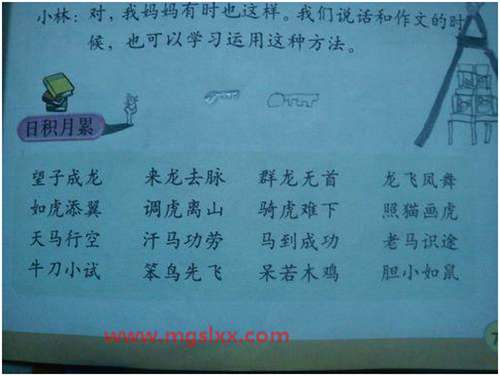 小林：对，我妈妈有时也这样。我们说话和作文的时
候，也可以学习运用这种方法。
日积月累
望子成龙 来龙去脉 群龙无首 龙飞凤舞
如虎添翼 调虎离山 骑虎难下 照猫画虎
天马行空 汗马功劳 马到成功 老马识途
牛刀小试 笨鸟先飞 呆若木鸡 胆小如鼠
www.mgslxx.com
7